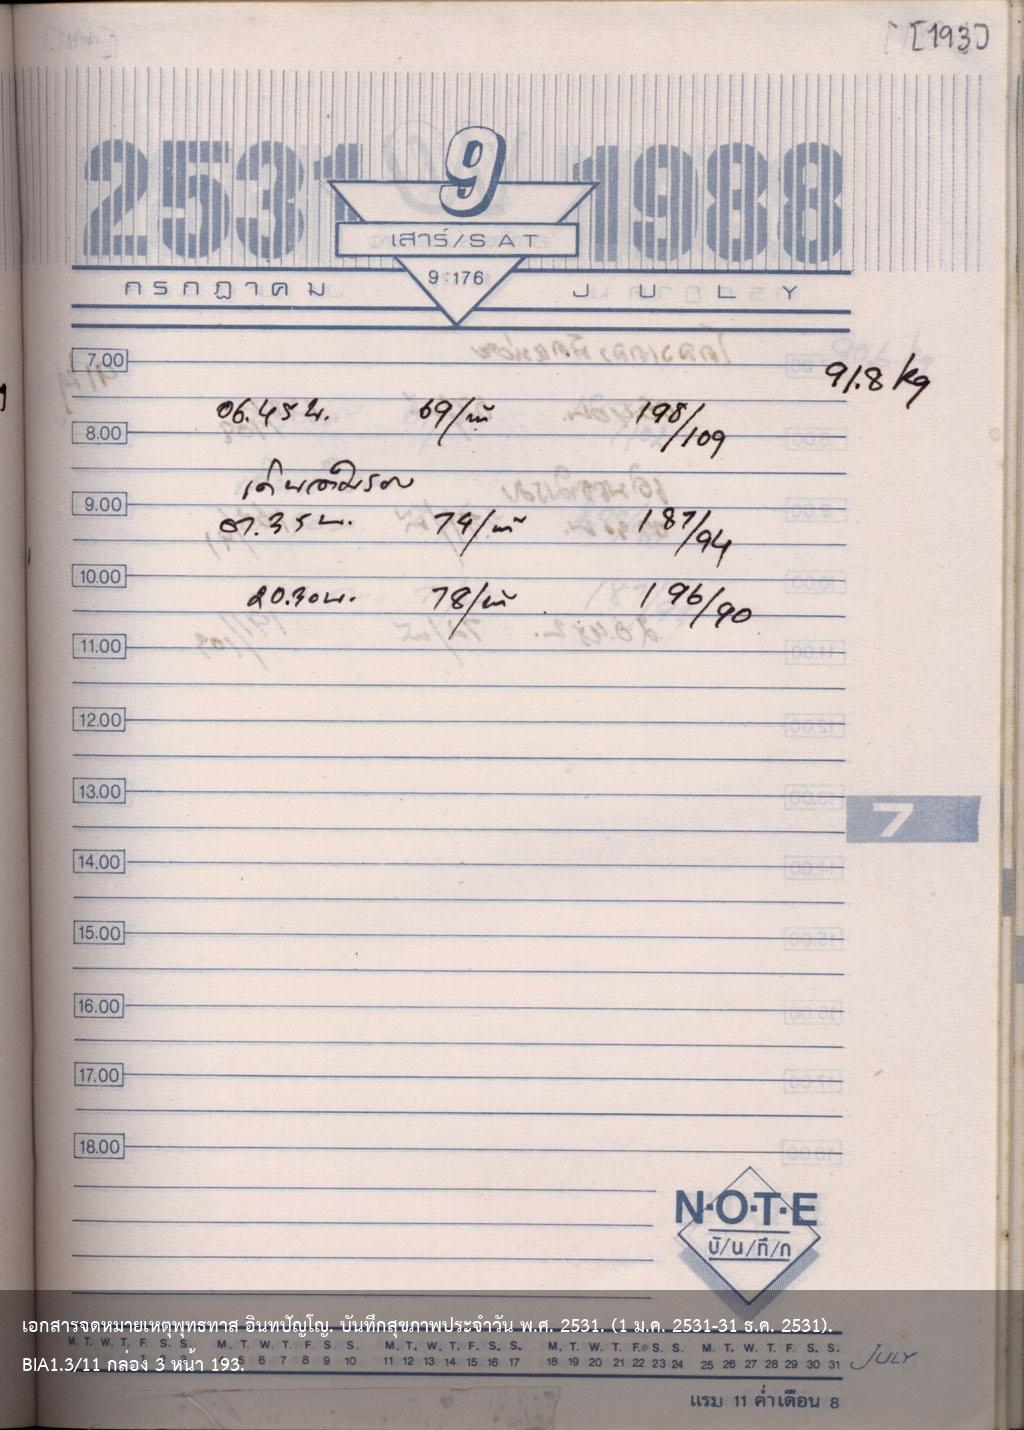 [193]
2531 9 1988
เสาร์/SAT
9:176
กรกฎาคม JULY
7.00
91.8 kg
06.45 น. 69/นาที 198/109
8.00
9.00
07.35 น. 74/นาที 187/94
10.00
20.30 น. 78/นาที 196/90
11.00
12.00
13.00
7
14.00
15.00
16.00
17.00
18.00
N·O·T·E
บั/น/ทึ/ก
เอกสารจดหมายเหตุพุทธทาส อินทปัญโญ. บันทึกสุขภาพประจำวัน พ.ศ. 2531. (1 ม.ค. 2531-31 ธ.ค. 2531).
M. T. W. T. F. S. S. M. T. W. T. F. S. S. M. T. W. T. F. S. S. M. T. W. T. F. S. S. M. T. W. T. F. S. S.
BIA1.3/11 กล่อง 3 หน้า 193.
5 6 7 8 9 10 11 12 13 14 15 16 17 18 19 20 21 22 23 24 25 26 27 28 29 30 31 JULY
แรม 11 ค่ำเดือน 8